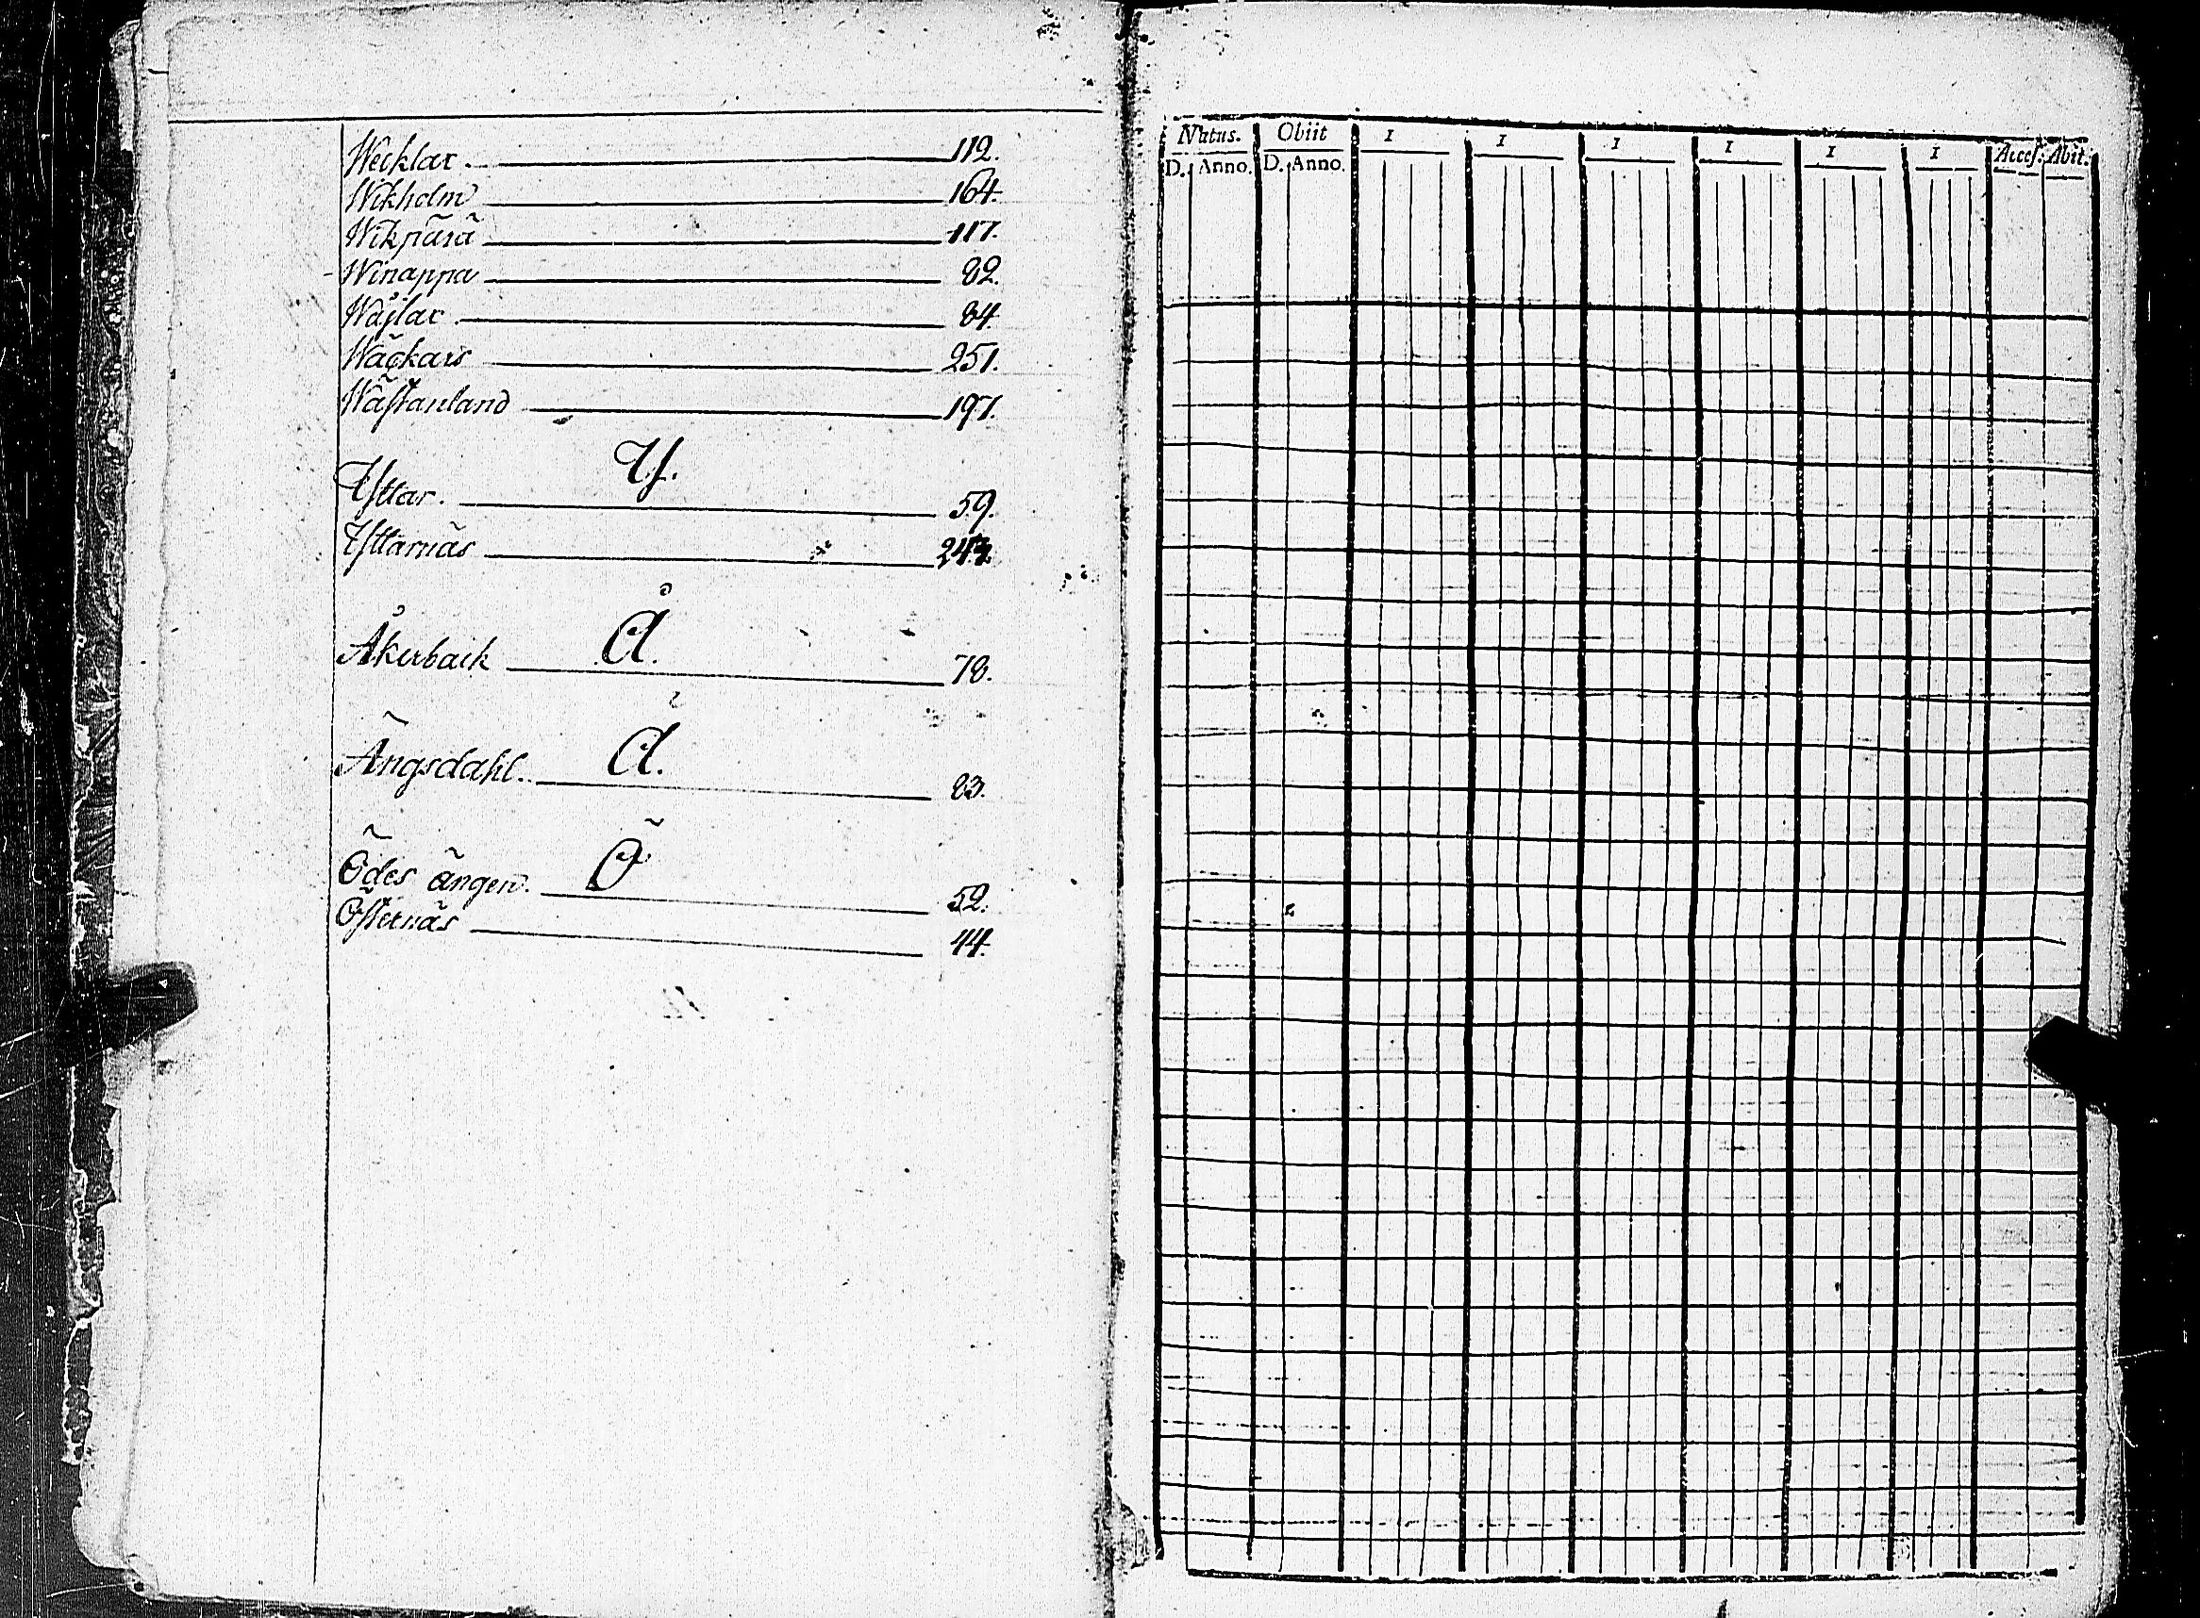 Wecklax. 112.
Wikholm 164.
Wikpärä 117.
Winappa 82.
Wåjlax. 84.
Wäckars 251.
Wästanland 197.
Y.
Yttar. 59.
Yttarnäs
Å.
Åkerback 78.
Ä.
Ängsdahl. 83.
Ö
Ödes ängen. 52.
Östernäs 44.
Natus. Obiit 1 1 1 1 1 1 Acces. Abit.
D. Anno. D. Anno.